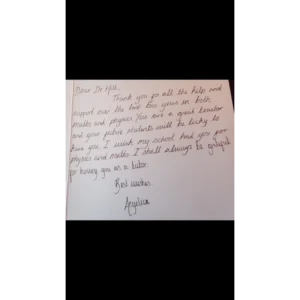 Dear Dr Hill,
Thank you for all the help and
support over the last two years in both
maths and physics. You are a great teacher
and your future students will be lucky to
have you. I wish my school had you for
physics and maths. I shall always be grateful
for having you as a tutor.
Best wishes
Angelina